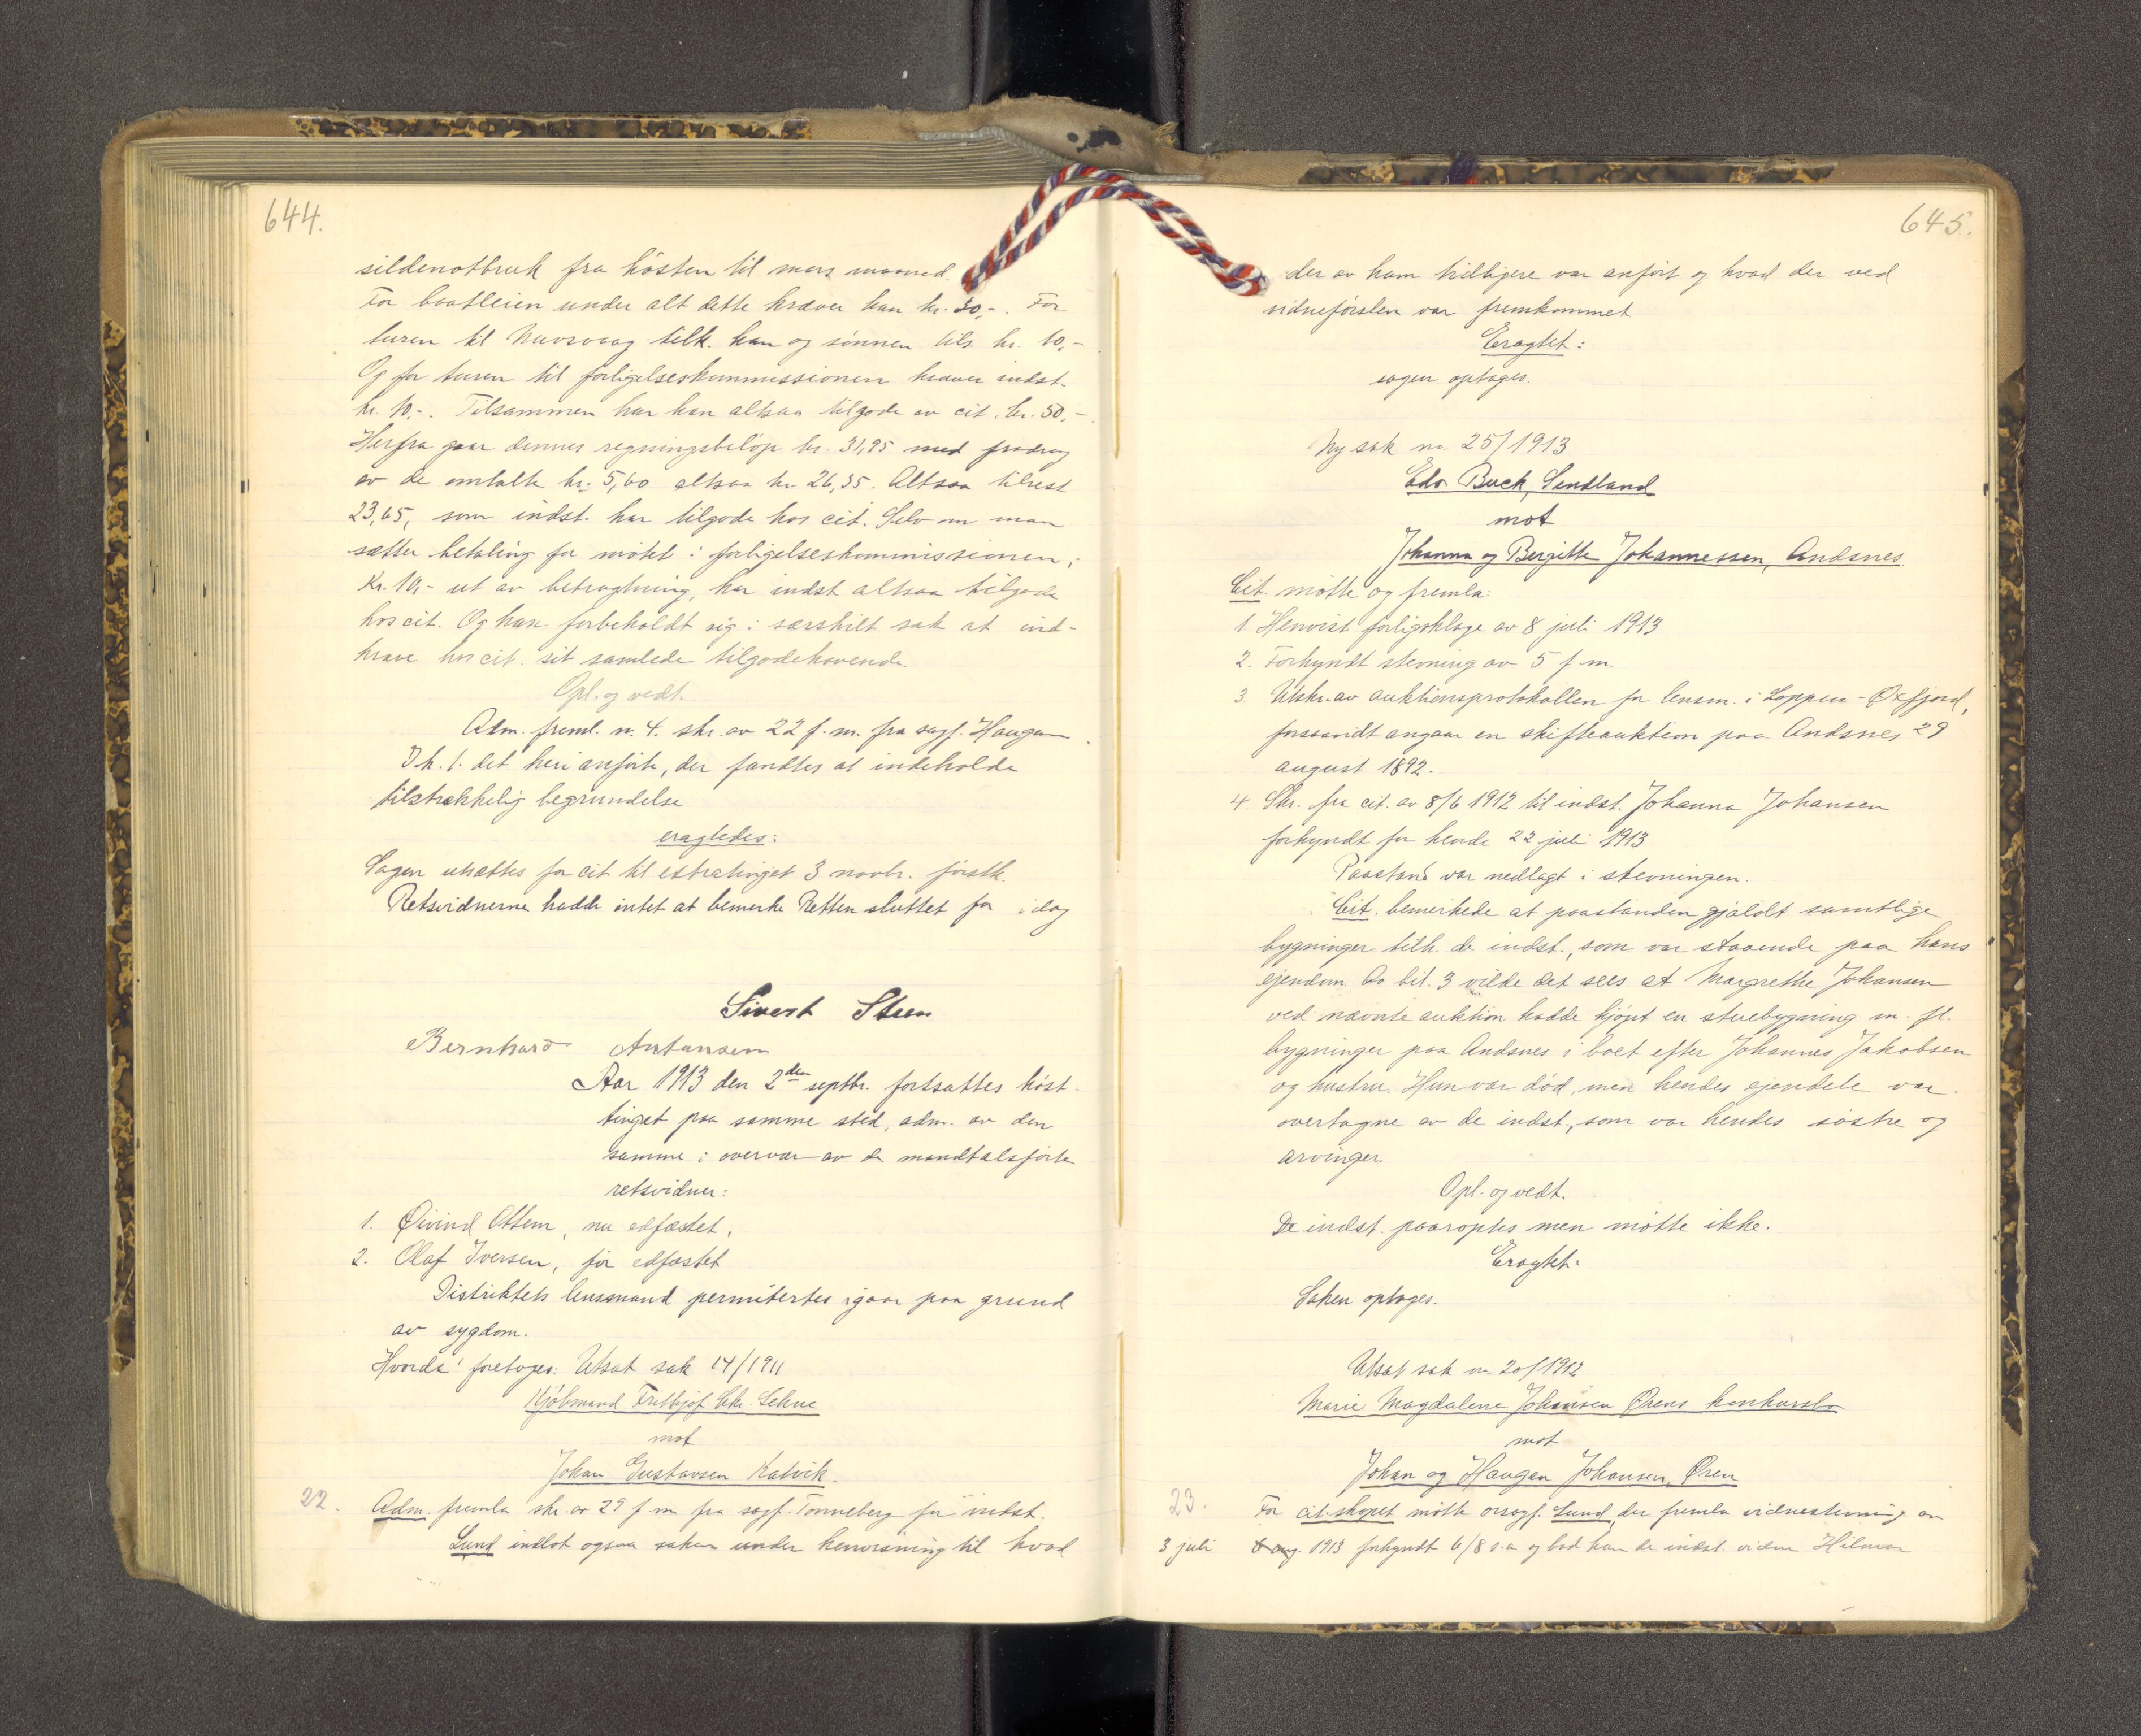 644.
sildenotbruk fra hösten til mars maaned.
For baatleien under alt dette kræver han kr. 30,-. For
turen til Nuvsvaag tilk. han og sönnen tils. kr. 10,-
Og for turen til forligelseskommissionen kræver indst.
kr. 10,-. Tilsammen har han altsaa tilgode av cit. kr. 50,-.
Herfra gaar dennes regningsbelöp kr. 31,95 med fradrag
av de omtalte kr. 5,60 altsaa kr. 26,35. Altsaa tilrest
23,65, som indst. har tilgode hos cit. Selv om man
sætter betaling for mötet i forligelseskommissionen,
Kr. 10,- ut av betragtning, har indst altsaa tilgode
hos cit. Og han forbeholdt sig i særskilt sak at ind-
kræve hos cit. sit samlede tilgodehavende.
Opl. og vedt.
Adm. freml. n. 4. skr. av 22 f. m. fra sagf. Haugen.
I h. t. det heri anförte, der fandtes at indeholde
tilstrækkelig begrundelse
eragtedes:
Sagen utsættes for cit til extratinget 3 novbr. förstk.
Retsvidnerne hadde intet at bemerke Retten sluttet for idag
Sivert Steen
Bernhard Antonsen
Aar 1913 den 2den septbr. fortsattes höst-
tinget paa samme sted, adm. av den
samme i overvær av de mandtalsförte
retsvidner:
1. Öivind Attem, nu edfæstet.
2. Olaf Iversen, för edfæstet
Distriktets lensmand permitertes igaar paa grund
av sygdom.
Hvorda! foretoges: Utsat sak 14/1911
Kjöbmand Frithjof Chr. Lehne
mot
Johan Gustavsen Kalvik.
22. Adm. fremla skr. av 29 f. m. fra sagf. Tonneberg for indst.
Lund indlot ogsaa saken under henvisning til hvad
645.
der av ham tidligere var anfört og hvad der ved
vidneförslen var fremkommet
Eragtet:
sagen optages.
Ny sak nr. 25/1913
Edv. Buck, Sendland
mot
Johanna og Bergitte Johannessen, Andsnes
Cit. mötte og fremla:
1. Henvist forligsklage av 8 juli 1913
2. Forkyndt stevning av 5 f. m.
3. Utskr. av auktionsprotokollen for lensm. i Loppen - Øxfjord,
forsaavidt angaar en skifteauktion paa Andsnes 29
august 1892.
4. Skr. fra cit. av 8/6 1912 til indst. Johanna Johansen
forkyndt for hende 22 juli 1913
Paastand var nedlagt i stevningen.
Cit. bemerkede at paastanden gjaldt samtlige
bygninger tilh. de indst., som var staaende paa hans
ejendom Av bil. 3 vilde det sees at Margrethe Johansen
ved nævnte auktion hadde kjöpt en stuebygning m. fl.
bygninger paa Andsnes i boet efter Johannes Jakobsen
og hustru. Hun var död, men hendes ejendele var
overtagne av de indst., som var hendes söstre og
arvinger.
Opl. og vedt.
De indst. paaroptes men mötte ikke.
Eragtet:
Saken optages.
Utsat sak nr 20/1912
Marie Magdalene Johansen Ørens konkursbo
mot
Johan og Haagen Johansen, Øren
23. For cit.skapet mötte orsagf. Lund, der fremla vidnestevning av
3 juli 8 aug. 1913 forkyndt 6/8 s. a og bad han de indst. vidner Hilmar